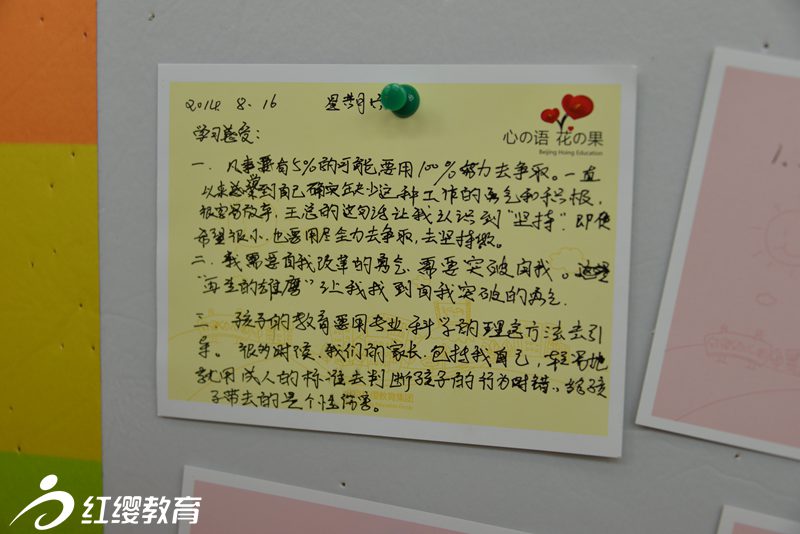 2014 8.16
心の语 花の果
Beijing Hoing Education
学习感受:
一、凡事要有5%的可能,要用100%努力去争取。一直
以来感觉到自己确实缺少这种工作的勇气和积极,
很容易放弃,王总的这句话让我认识到"坚持".即使
希望很小,也要用尽全力去争取,去坚持做。
二、我需要自我改革的勇气,需要突破自我。这是
"再生的雄鹰"让我找到自我突破的勇气.
三、孩子的教育要用专业.科学的理念方法去引
导。很多时候,我们的家长,包括我自己,轻易地
就用成人的标准去判断孩子的行为对错、给孩
子带去的是个性伤害。
教育集团
1.
红缨教育